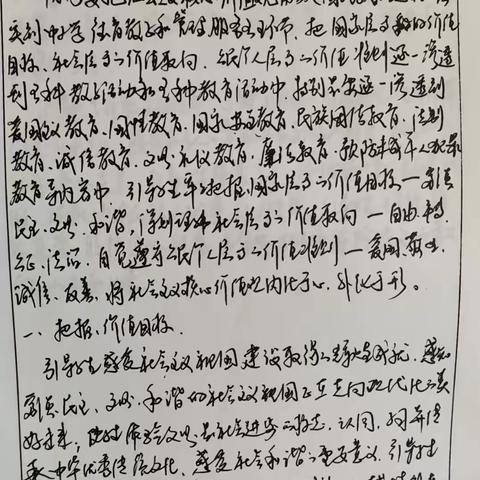 实到中学 体育教学和管理服务工作中，把 国家层面的价值
目标、社会层面价值取向、公民个人层面价值准则逐一渗透
到各种教学活动和各种教育活动中，特别是逐一渗透到
爱国主义教育、国情教育、国家安全教育、民族团结教育、法制
教育、诚信教育、文明礼仪教育、廉洁教育、预防未成年人犯罪
教育等内容中，引导学生牢牢把握国家层面价值目标—富强
民主、文明、和谐，深刻理解社会层面价值取向—自由、平等、
公正、法治，自觉遵守公民个人层面价值准则—爱国、敬业、
诚信、友善，将社会主义核心价值观内化于心，外化于形。
一、把握价值目标
引导学生感受社会主义祖国建设取得的重大成就，感知
富强、民主、文明、和谐的社会主义祖国正在走向现代化的美
好未来；体会文明是社会进步的标志，认同、
中华优秀传统文化，感受社会和谐的重要意义，引导学生